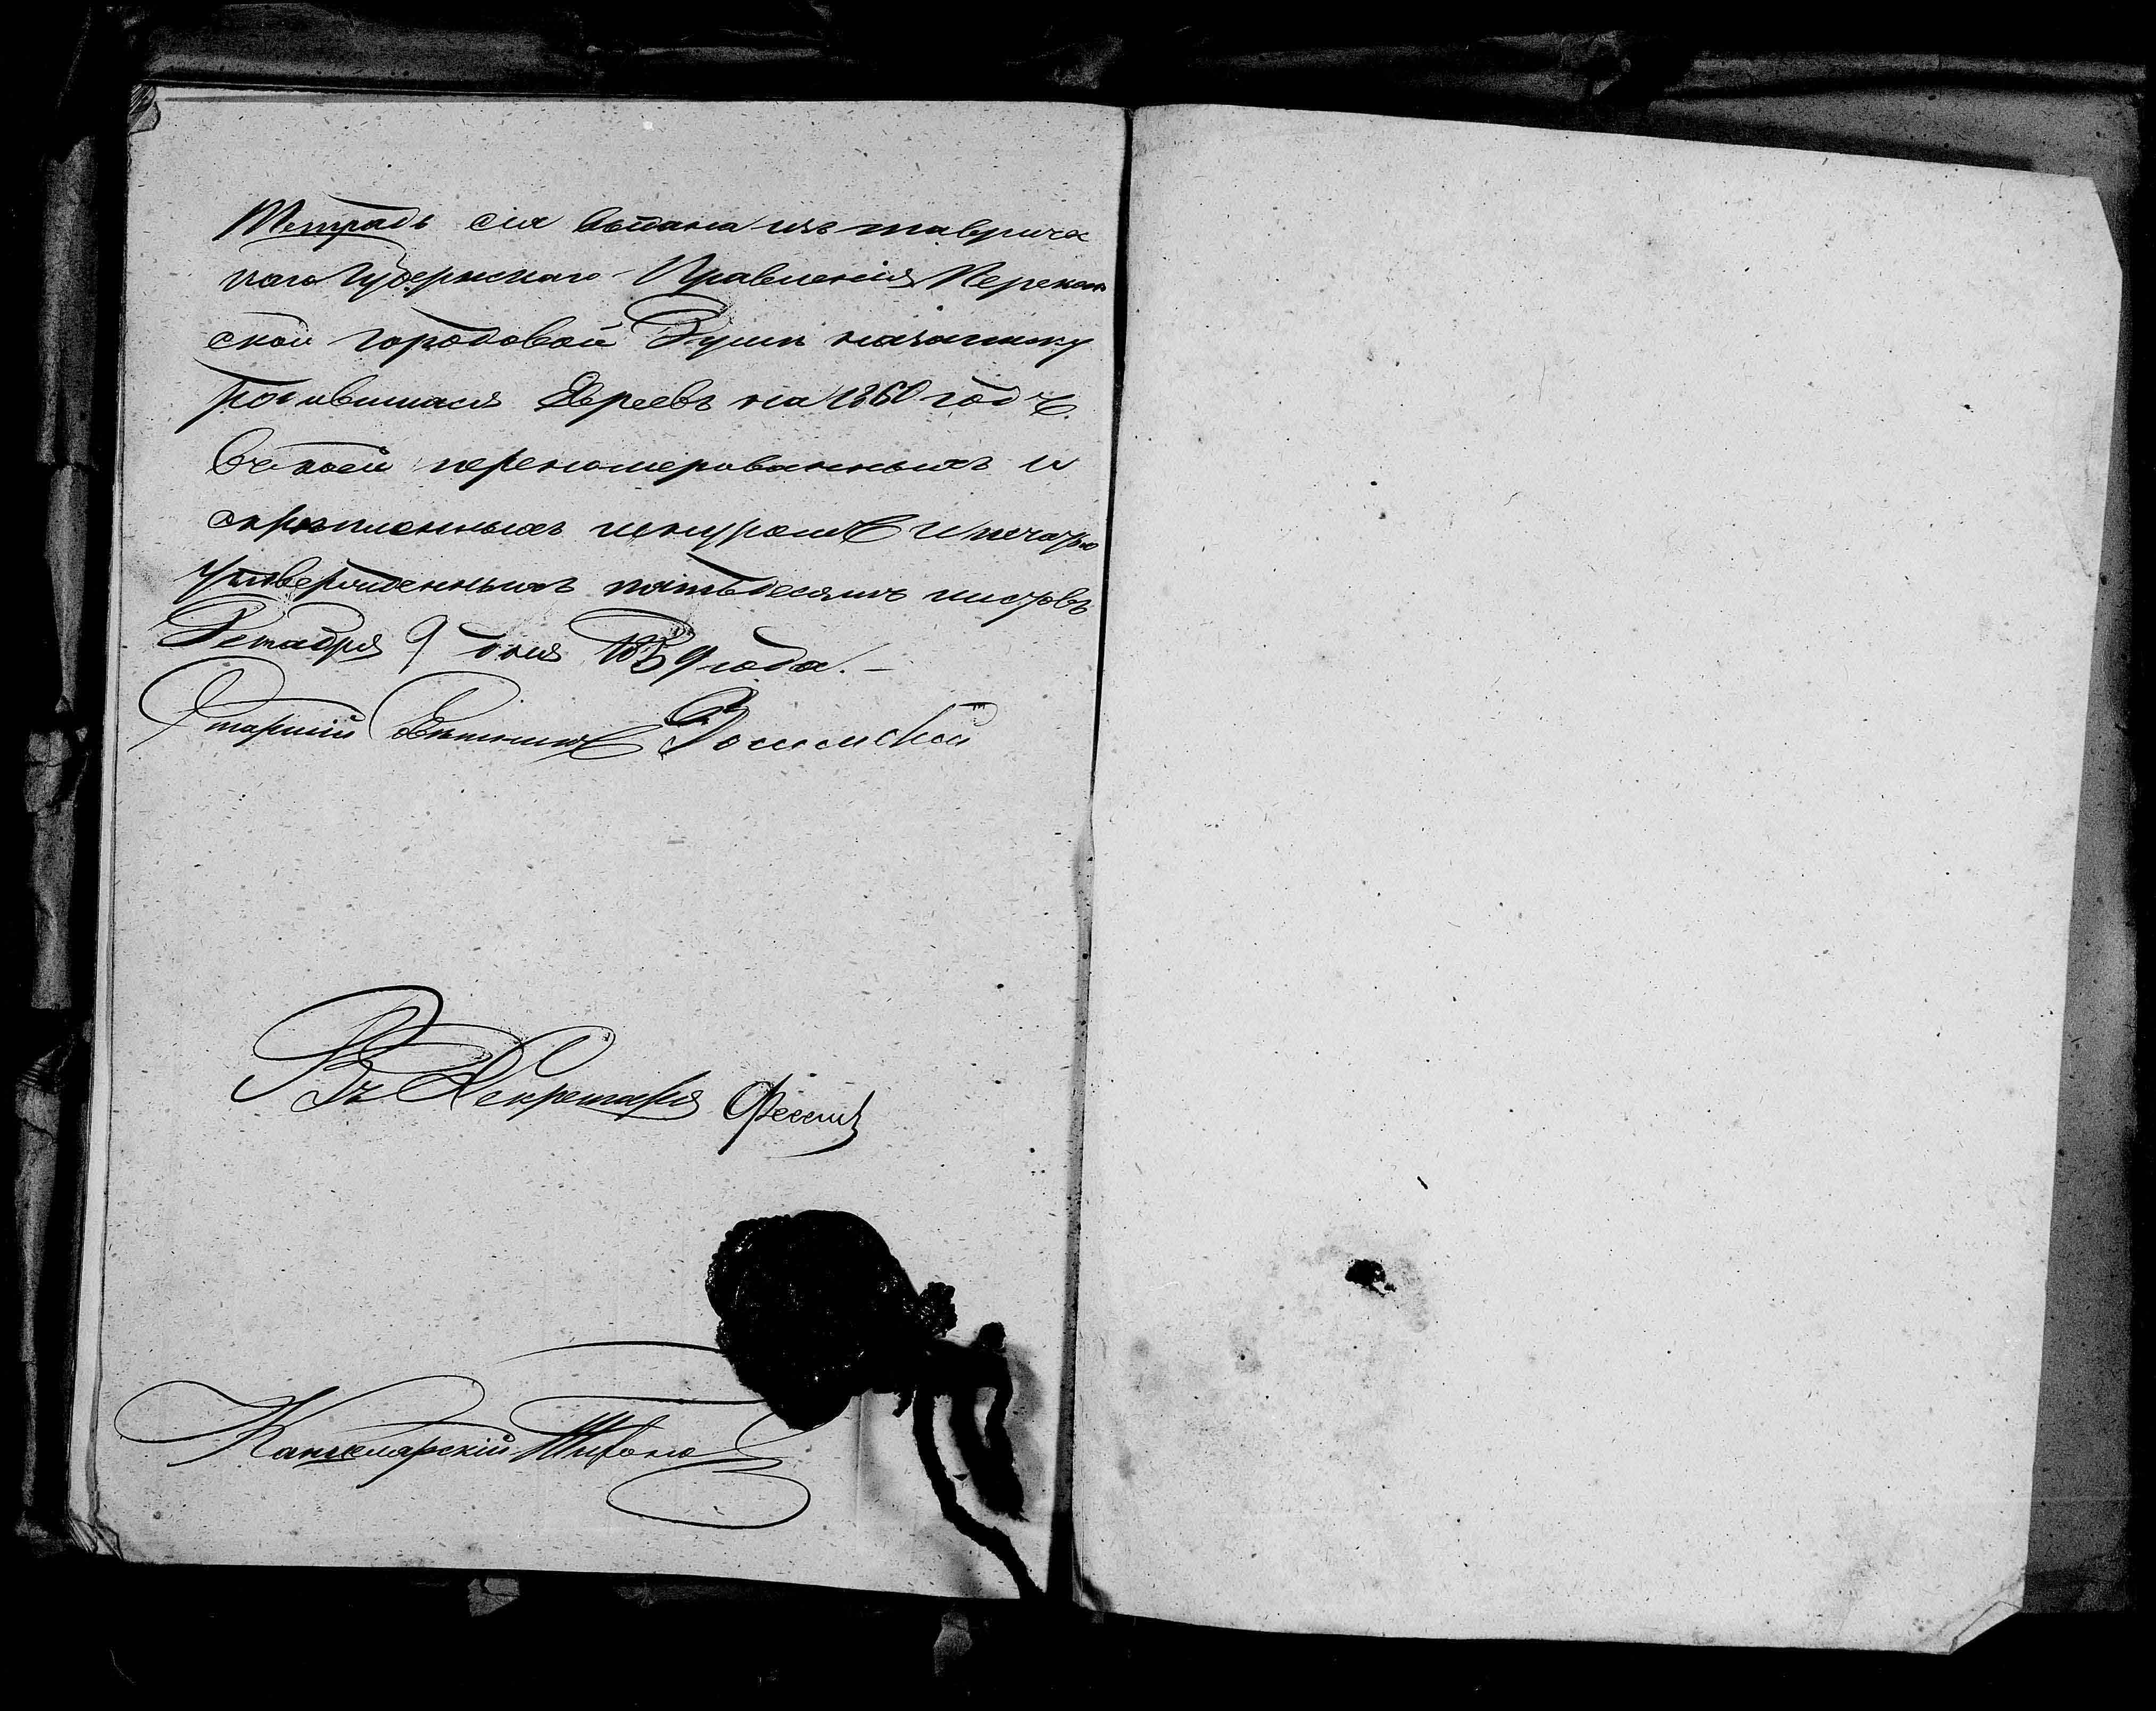 Тетрадь сія выдана изъ тавриче
скаго Губернскаго Правленія Перекоп
ской городовой Думы на записку
родившихся Евреевъ на 1860 годъ.
въ коей перенумерованныхъ и
скрѣпленныхъ шнуромъ и печатью
утвержденныхъ пятьдесятъ листовъ
Декабря 9 дня 1859 года.—
Старшій Совѣтникъ
За Секретаря
Канцелярскій